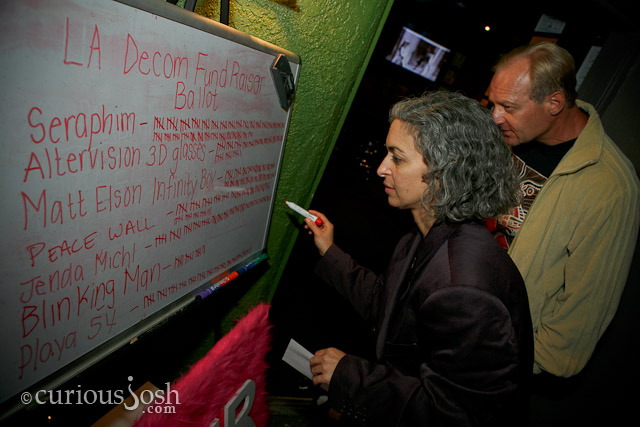 LA Decom FundRaiser
Ballot
Seraphim -
Altervision 3D glasses -
Matt Elson Infinity Box
PEACE WALL -
Jenda Michl -
Blinking Man -
Playa 54 -
©curiousJosh
.com